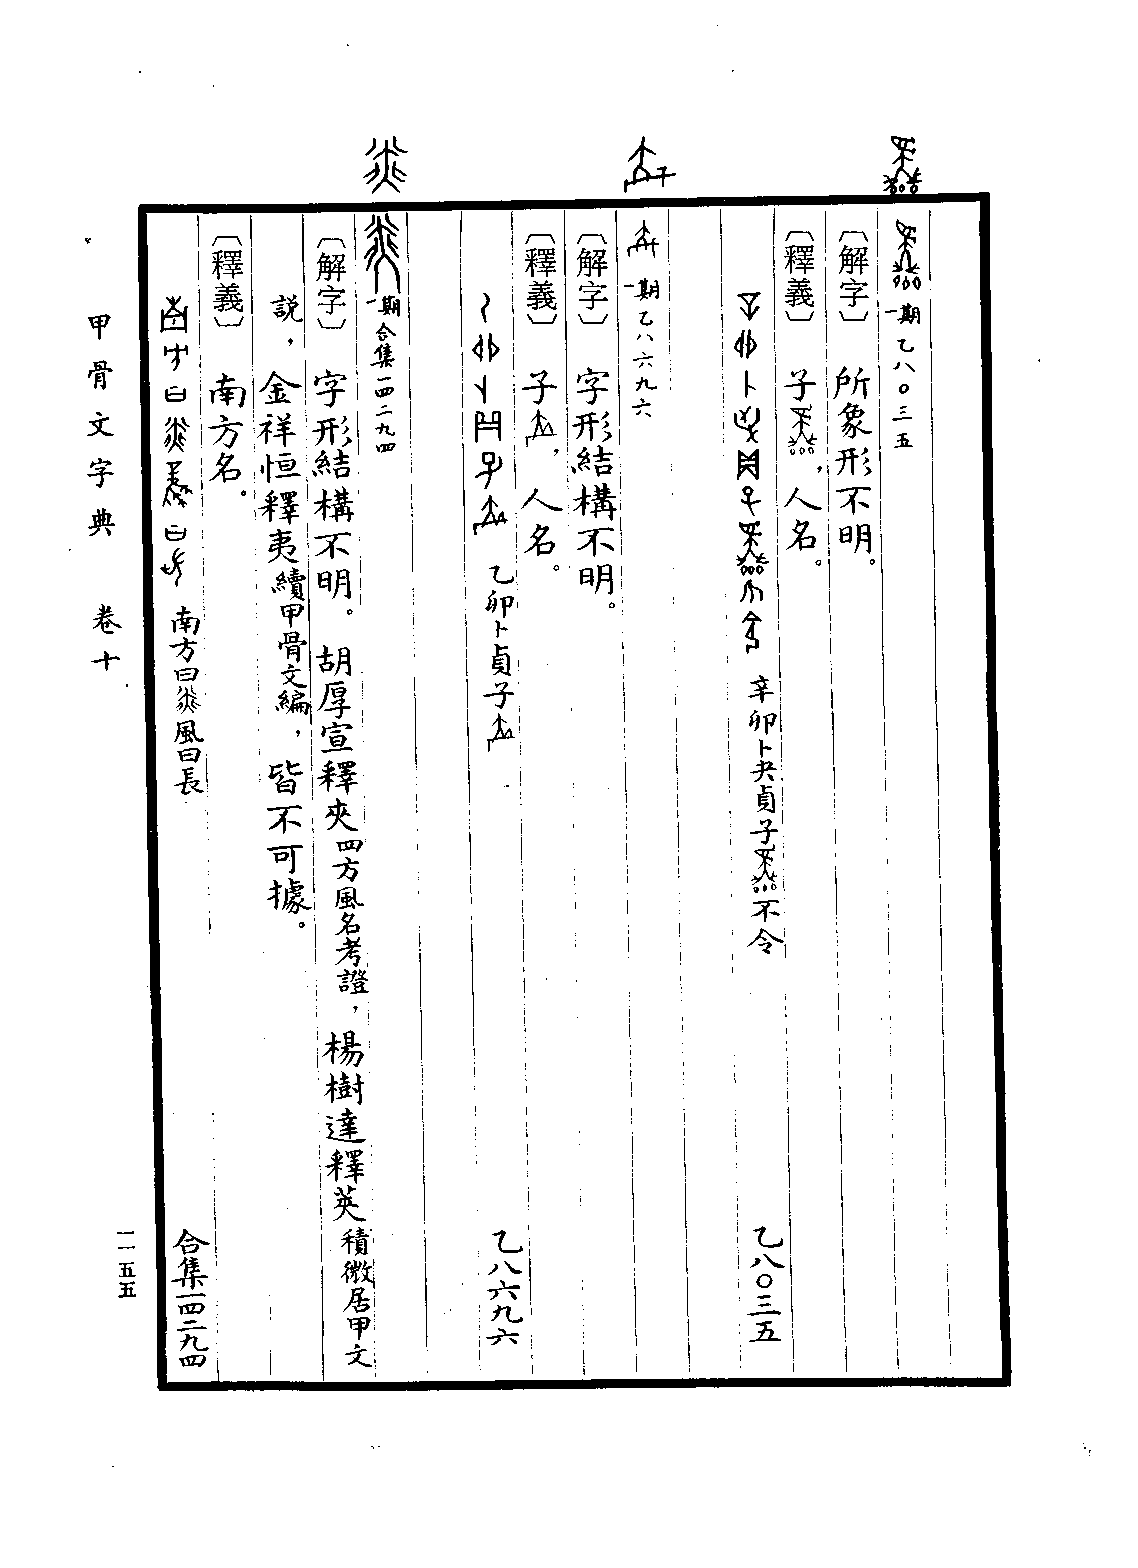 一期 乙八〇三五
〔解字〕 所象形不明。
〔釋義〕 子，人名。
辛卯卜𡆥貞子不令 乙八〇三五
一期 乙八六九六
〔解字〕 字形結構不明。
〔釋義〕 子，人名。
乙卯卜貞子 乙八六九六
一期 合集一四二九四
〔解字〕 字形結構不明。胡厚宣釋夾四方風名考證，楊樹達釋莢積微居甲文
說，金祥恒釋夷續甲骨文編，皆不可據。
〔釋義〕 南方名。
南方曰風曰長 合集一四二九四
甲骨文字典 卷十
一一五五